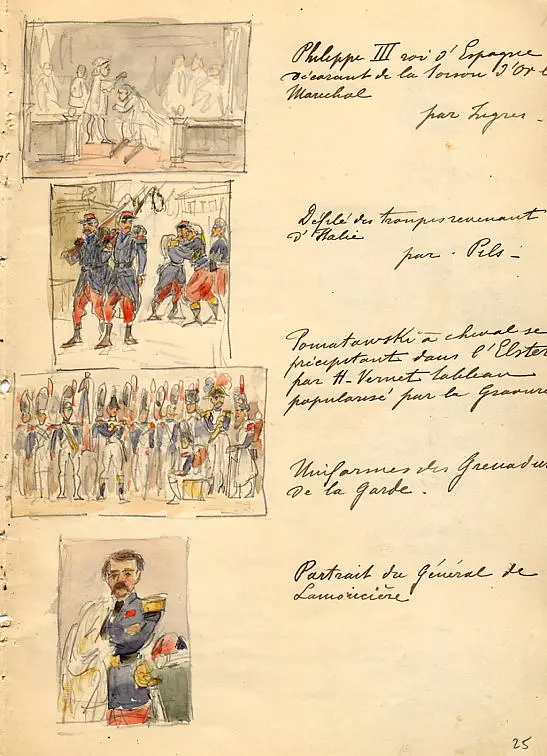 Philippe III roi d'Espagne
décorant de la toison d'Or l
Marechal
par Ingres -
Défilé des troupes revenant
d'Italie
par - Pils -
Poniatowski à cheval se
précipitant dans l'Elster
par H-Vernet tableau
popularisé par la Gravure
Uniformes des Grenadie
de la Garde.
Portrait du Général de
Lamoricière
25